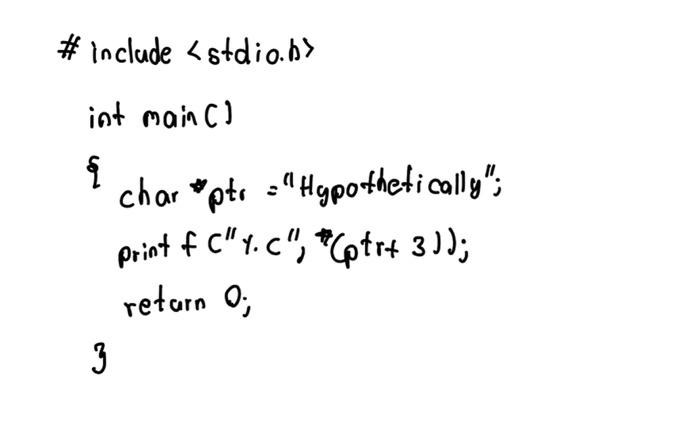 # include <stdio.h>
int main()
{
char *ptr = "Hypothetically";
printf("%c", *(ptr+ 3));
return 0;
}